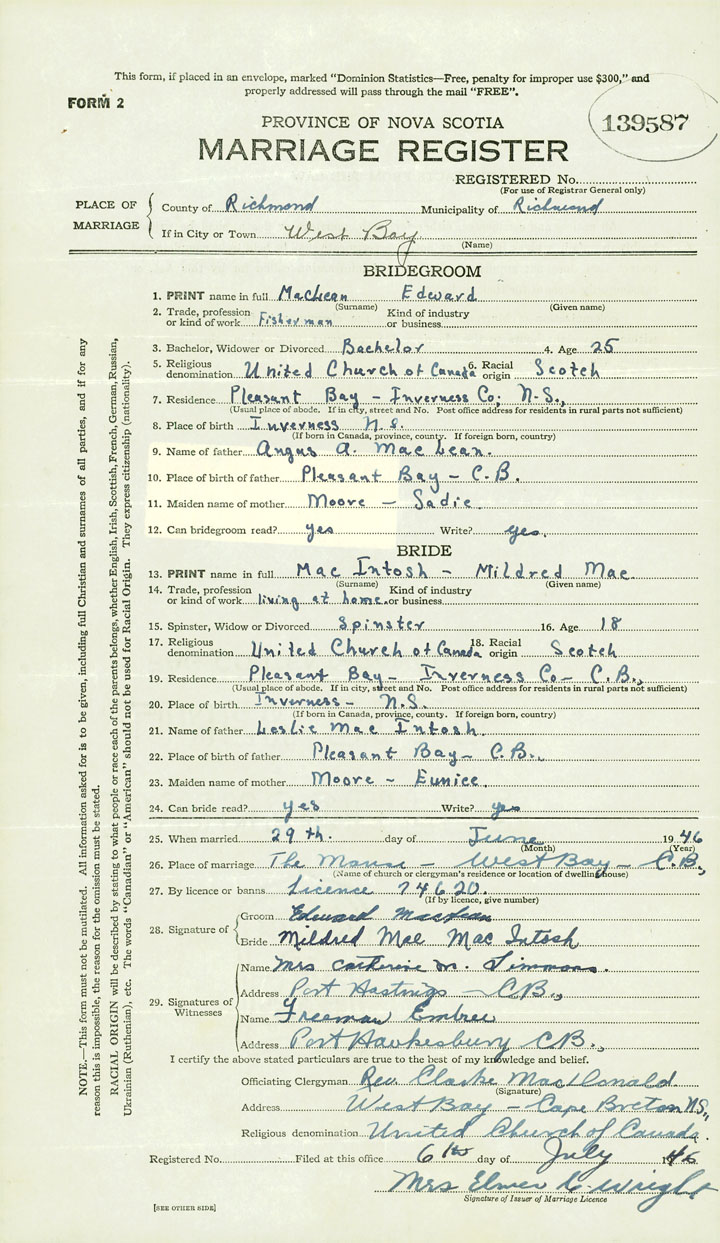 This form, if placed in an envelope, marked "Dominion Statistics—Free, penalty for improper use $300," and
properly addressed will pass through the mail "FREE".
FORM 2
139587
PROVINCE OF NOVA SCOTIA
MARRIAGE REGISTER
REGISTERED No.
(For use of Registrar General only)
PLACE OF MARRIAGE
County of Richmond Municipality of Richmond
If in City or Town West Bay
(Name)
BRIDEGROOM
1. PRINT name in full MacLean Edward
(Surname) (Given name)
2. Trade, profession or kind of work Fisherman Kind of industry or business
3. Bachelor, Widower or Divorced Bachelor 4. Age 25
5. Religious denomination United Church of Canada 6. Racial origin Scotch
7. Residence Pleasant Bay – Inverness Co; N.S.,
(Usual place of abode. If in city, street and No. Post office address for residents in rural parts not sufficient)
8. Place of birth Inverness N.S.
(If born in Canada, province, county. If foreign born, country)
9. Name of father Angus A. MacLean.
10. Place of birth of father Pleasant Bay – C.B.
11. Maiden name of mother Moore – Sadie
12. Can bridegroom read? yes Write? yes.
BRIDE
13. PRINT name in full Mac Intosh – Mildred Mae
(Surname) (Given name)
14. Trade, profession or kind of work living at home. Kind of industry or business
15. Spinster, Widow or Divorced Spinster 16. Age 18
17. Religious denomination United Church of Canada 18. Racial origin Scotch
19. Residence Pleasant Bay – Inverness Co – C.B.,
(Usual place of abode. If in city, street and No. Post office address for residents in rural parts not sufficient)
20. Place of birth Inverness – N.S.
(If born in Canada, province, county. If foreign born, country)
21. Name of father Leslie Mac Intosh
22. Place of birth of father Pleasant Bay – C.B.,
23. Maiden name of mother Moore – Eunice
24. Can bride read? yes Write? yes
25. When married 29 th. day of June 1946
(Month) (Year)
26. Place of marriage The Manse – West Bay – C.B.,
(Name of church or clergyman's residence or location of dwelling house)
27. By licence or banns Licence 74620.
(If by licence, give number)
28. Signature of
Groom Edward MacLean
Bride Mildred Mae Mac Intosh
29. Signatures of Witnesses
Name Mrs Catherine M. Simmons.
Address Port Hastings – C.B.,
Name Freeman Embree
Address Port Hawkesbury C.B.,
I certify the above stated particulars are true to the best of my knowledge and belief.
Officiating Clergyman Rev. Clarke MacDonald.
(Signature)
Address West Bay – Cape Breton N.S.,
Religious denomination United Church of Canada.
Registered No. Filed at this office 6th day of July 1946
Mrs Elmer C. Wright
Signature of Issuer of Marriage Licence
[SEE OTHER SIDE]
NOTE.—This form must not be mutilated. All information asked for is to be given, including full Christian and surnames of all parties, and if for any
reason this is impossible, the reason for the omission must be stated.
RACIAL ORIGIN will be described by stating to what people or race each of the parents belongs, whether English, Irish, Scottish, French, German, Russian,
Ukrainian (Ruthenian), etc. The words "Canadian" or "American" should not be used for Racial Origin. They express citizenship (nationality).